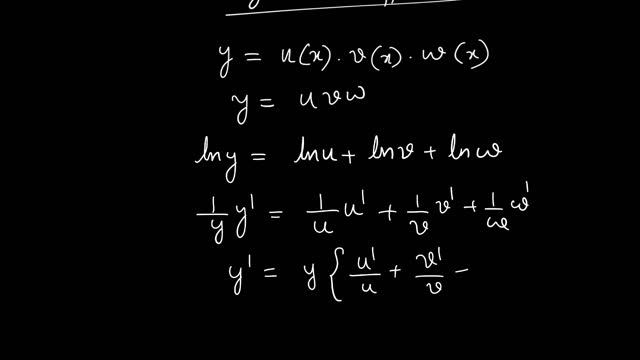 y = u(x) . v(x) . w(x)
y = u v w
ln y = ln u + ln v + ln w
1/y y' = 1/u u' + 1/v v' + 1/w w'
y' = y { u'/u + v'/v -